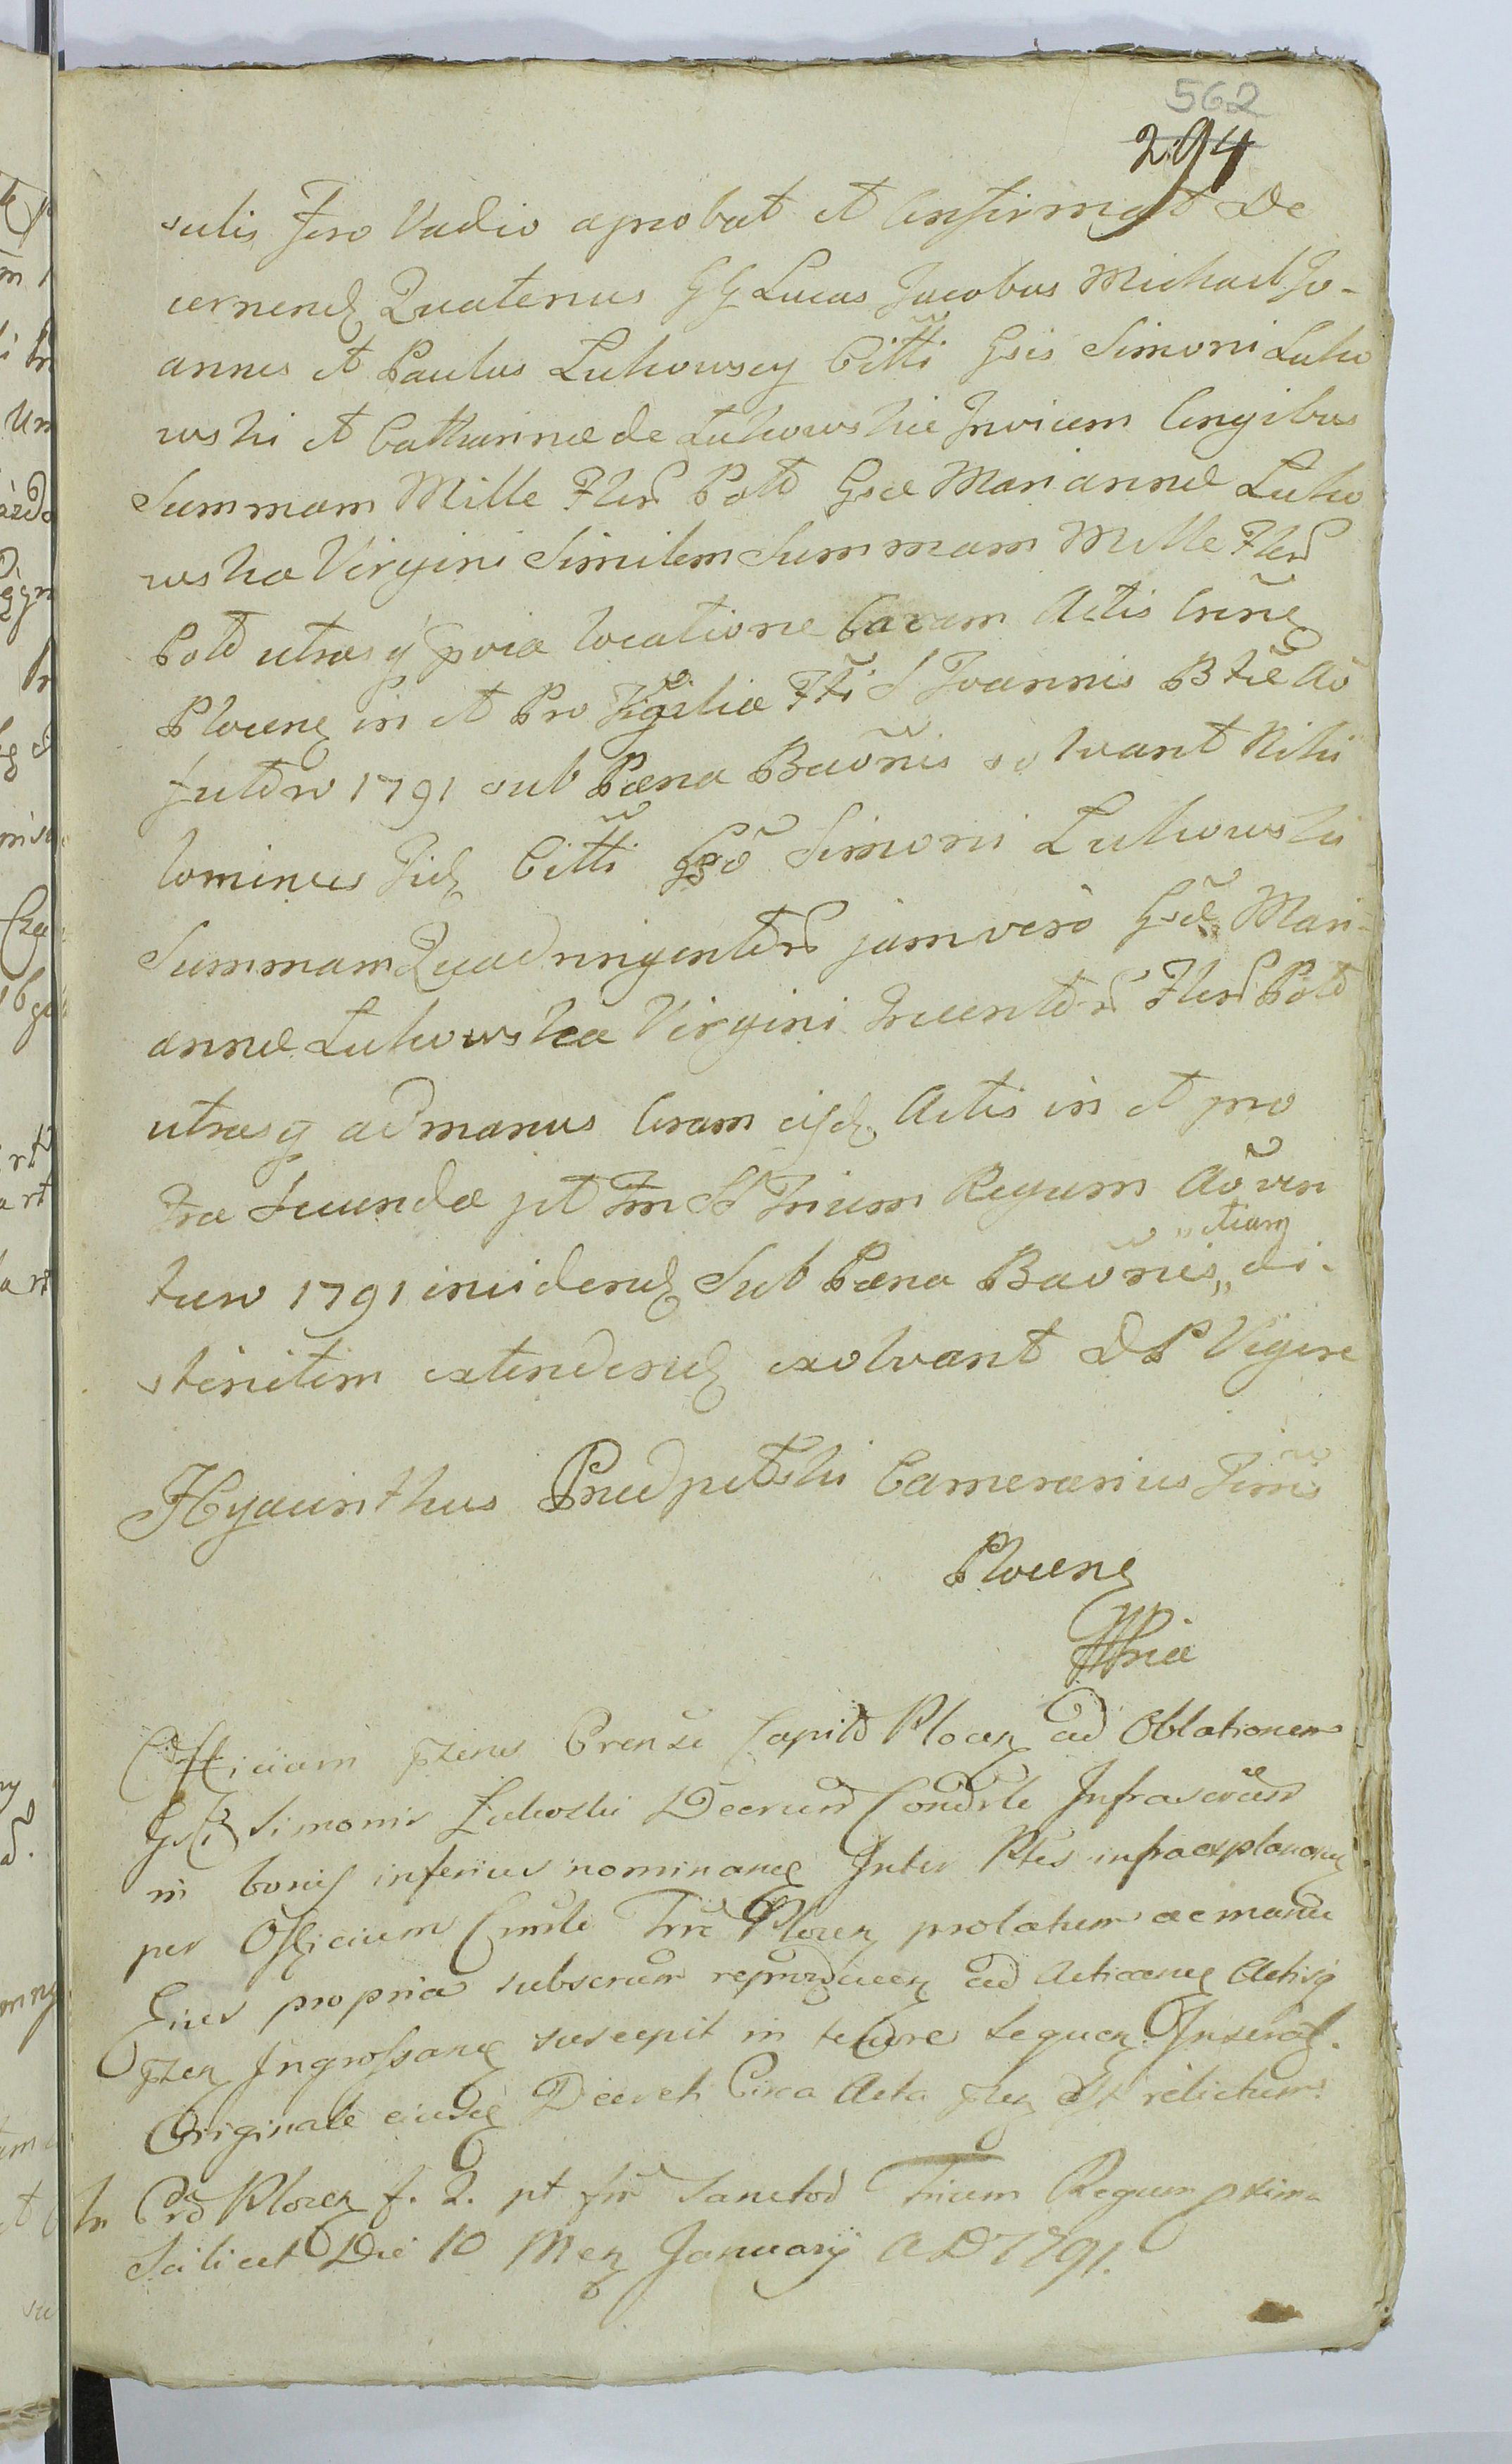 562
294
sutis fero Vadio aprobat et Confirmat De
cernend Quatenus GG Lucas Jacobus Michael Jo-
annes et Paulus Lukowscy Citti Gsis Simoni Luko
wski et Catharinæ de Lukowskie Invicem Congibus
Summam Mille Flen Pold Gsæ Mariannæ Luko
wska Virgini Similem Summam Mille Flen
Pold utrasq pvia locatione Coram Actis Crñe
Plocen in et Pro Vigilia Fti S Joannis Btæ Ao
futuro 1791 sub Pæna Baõnis solvant Nihi
lominus Iid Citti Gso Simoni Lukowski
Summam Quadringentor jam vero Gsæ Mari-
annæ Lukowska Virgini Ducentor Flen Pold
utrasq ad manus Coram eisd Actis in et pro
Fra Secunda pt Fm SS Trium Regum Ao ven
turo 1791 inciden Sub Pæna Baõnis,, di-
,,etiam
stinctim extendend exolvant DP Vigere
Hyacinthus Camerarius Trñs
Plocen
Officium pzens Crense Capitd Plocen ad Oblationem
Gsi Simonis Lukoski Decretum Condrle Infrascrum
in bonis inferius nominand Inter Ptes infraexplanand
per Officium Cmrle Trræ Plocen prolatum ac manu
Eius propria subscrum reproducen ad Acticand Actisq
pzen Ingrossand suscepit in tenore sequen Inserat.
Originale eiusd Decreti Circa Acta pzen est relictum.
In Crd Plocen f. 2. pt fm Sanctod Trium Regum pxima
Scilicet Die 10 Men January AD 1791.